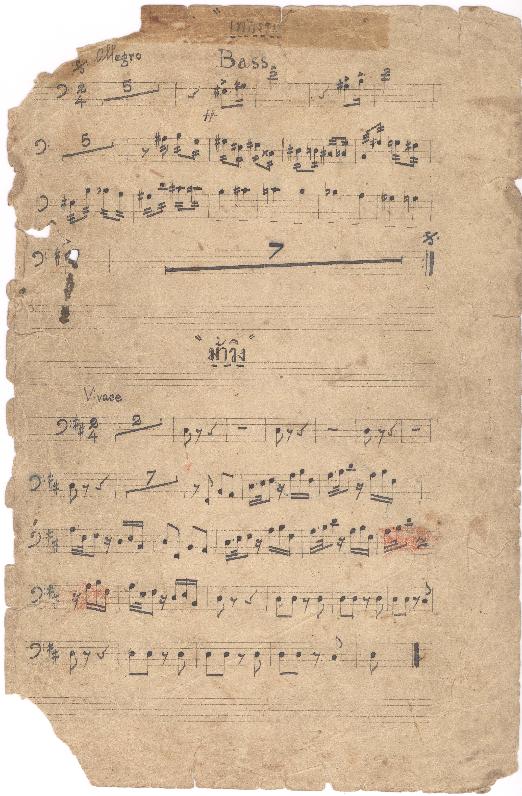 Allegro
Bass
5
5
7
"ม้าวิ่ง"
Vivace
2
7